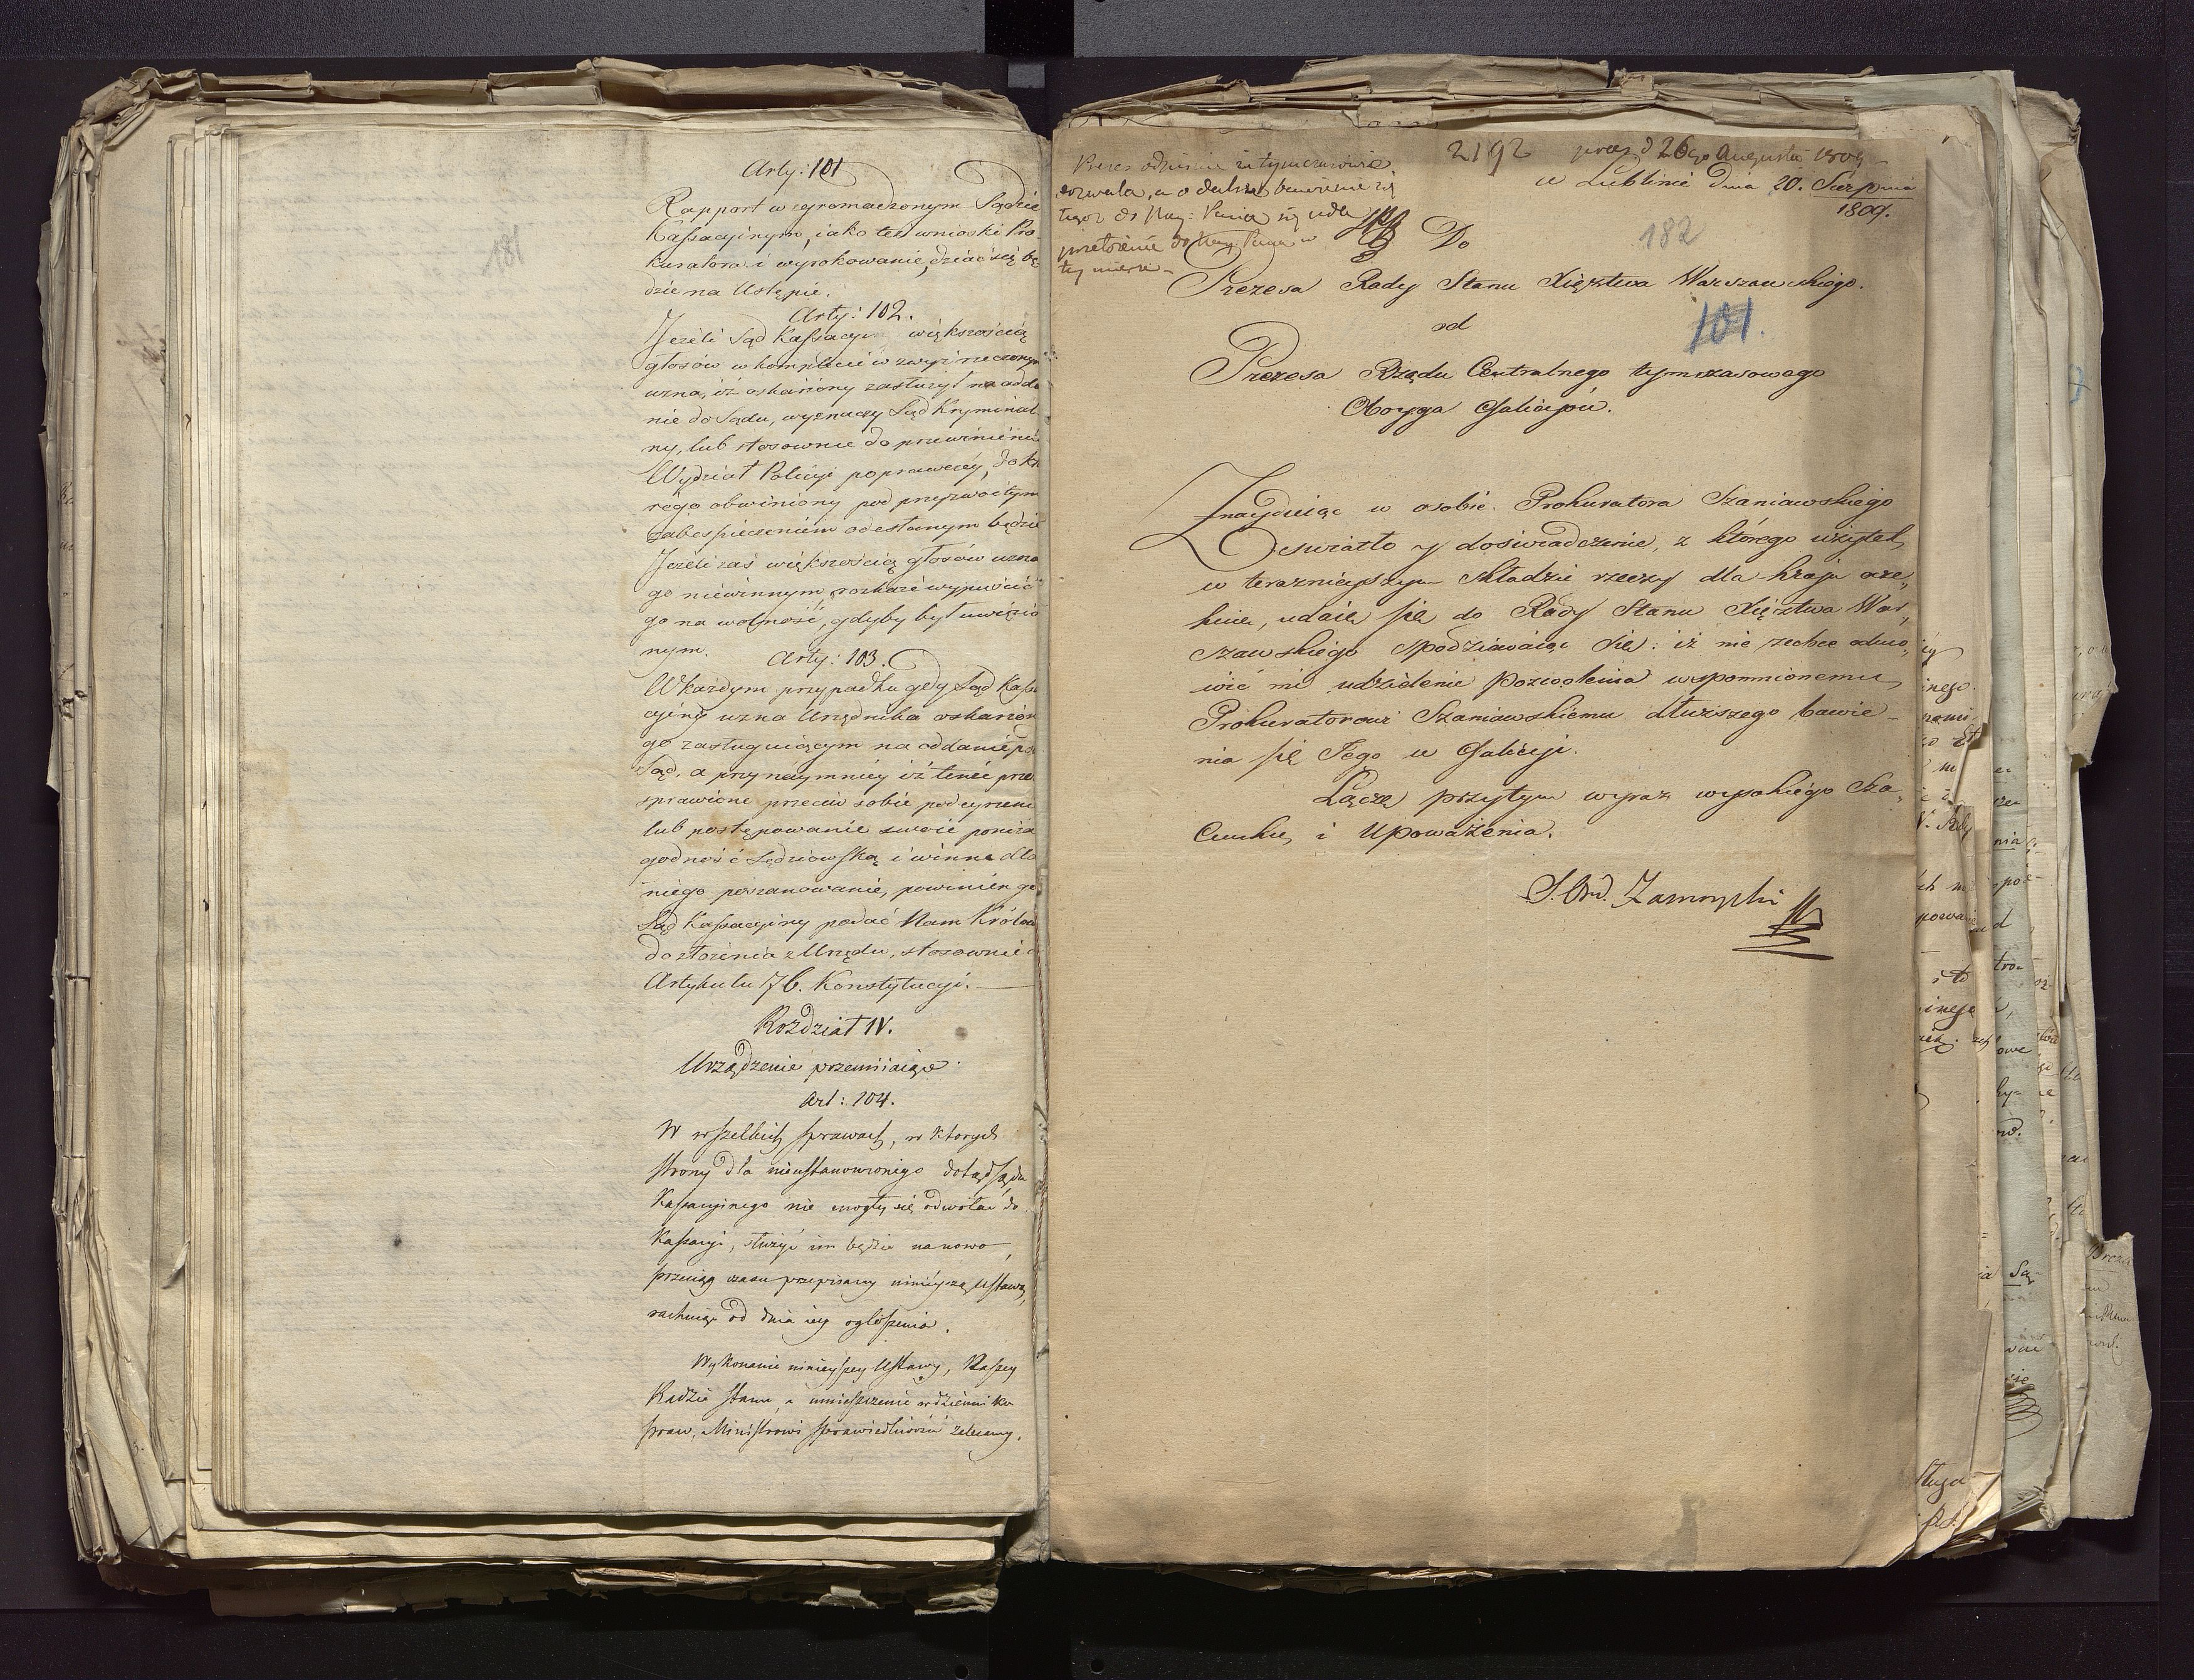 181
Arty: 101
Rapport w zgromadzonym Sądzie
Kassacyinym, iako też wnioski Pro
kuratora i wyrokowanie, dziać się bę
dzie na Ustępie.
Arty: 102.
Jeżeli Sąd Kassacyin większością
głosów w komplecie w zwyż rzeczonym
uzna, iż oskarżony zasłużył na odda
nie do Sądu, wyznaczy Sąd Kryminal
ny, lub stosownie do przewinienia
Wydział Policyi poprawczey, do któ
rego obwiniony pod przyzwoitym
zabespieczeniem odesłanym będzie
Jeżeli zaś większością głosów uzna
go niewinnym, rozkaże wypuścić
go na wolność, gdyby był uwięzio
nym.
Arty: 103.
W każdym przypadku gdy Sąd Kass
cyiny uzna Urzędnika oskarżon
go zasługuiącym na oddanie po
Sąd, a przynaymniey iż tenże prze
sprawione przeciw sobie podeyrzeni
lub postępowanie swoie poniża
godność Sędziowską i winne dla
niego poszanowanie, powinien go
Sąd Kassacyiny podać Nam Królow
do złożenia z Urzędu, stosownie d
Artykułu 76. Konstytucyi.
Rozdział IV.
Urządzenie przemiiaiące
Art: 104.
W wszelkich sprawach, w których
strony dla nieustanowionego dotąd sądu
Kassacyinego nie mogły się odwołać do
Kassacyi, służyć im będzie na nowo
przeciąg czasu przepisany ninieyszą Ustawą,
rachuiąc od dnia iey ogłoszenia.
Wykonanie ninieyszey Ustawy, Naszey
Radzie Stanu, a umieszczenie w dzienniku
praw, Ministrowi sprawiedliwości zalecamy.
2192 prez d 26go Augusta 1809
w Lublinie Dnia 20. Sierpnia
1809.
Prezes odpisze iż tymczasowie
zezwala, a o dalsze bawienie się
tegoż do Nay: Pana się uda
przełożenie do Nay: Pana w
tey mierze
182
Do
Prezesa Rady Stanu Xięztwa Warszawskiego.
101.
od
Prezesa Rządu Centralnego tymczasowego
Oboyga Galicyów.
Znayduiąc w osobie Prokuratora Szaniawskiego
światło y doświadczenie, z którego użytek,
w teraznieyszym składzie rzeczy dla kraju ocze„
kuię, udaię się do Rady Stanu Xięztwa War„
szawskiego spodziewaiąc się: iż nie zechce odmó„
wić mi udzielenia pozwolenia wspomnionemu
Prokuratorowi Szaniawskiemu dłuższego bawie-
nia się Jego w Galicyi.
Łączę przytym wyraz wysokiego Sza„
cunku i Upoważenia.
S. Ord. Zamoyski